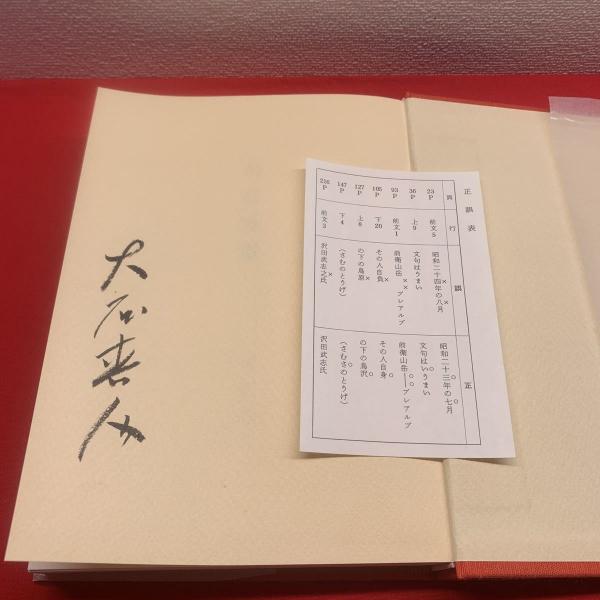 正誤表
頁 行 誤 正
23P 前文5 昭和二十四年の八月 昭和二十三年の七月
36P 上9 文句はうまい 文句はいうまい
93P 前文1 前衛山岳 プレアルプ 前衛山岳──プレアルプ
105P 下20 その人自負 その人自身
127P 上8 の下の鳥原 の下の鳥沢
147P 下4 (さむのとうげ) (さむさのとうげ)
236P 前文3 沢田武志之氏 沢田武志氏